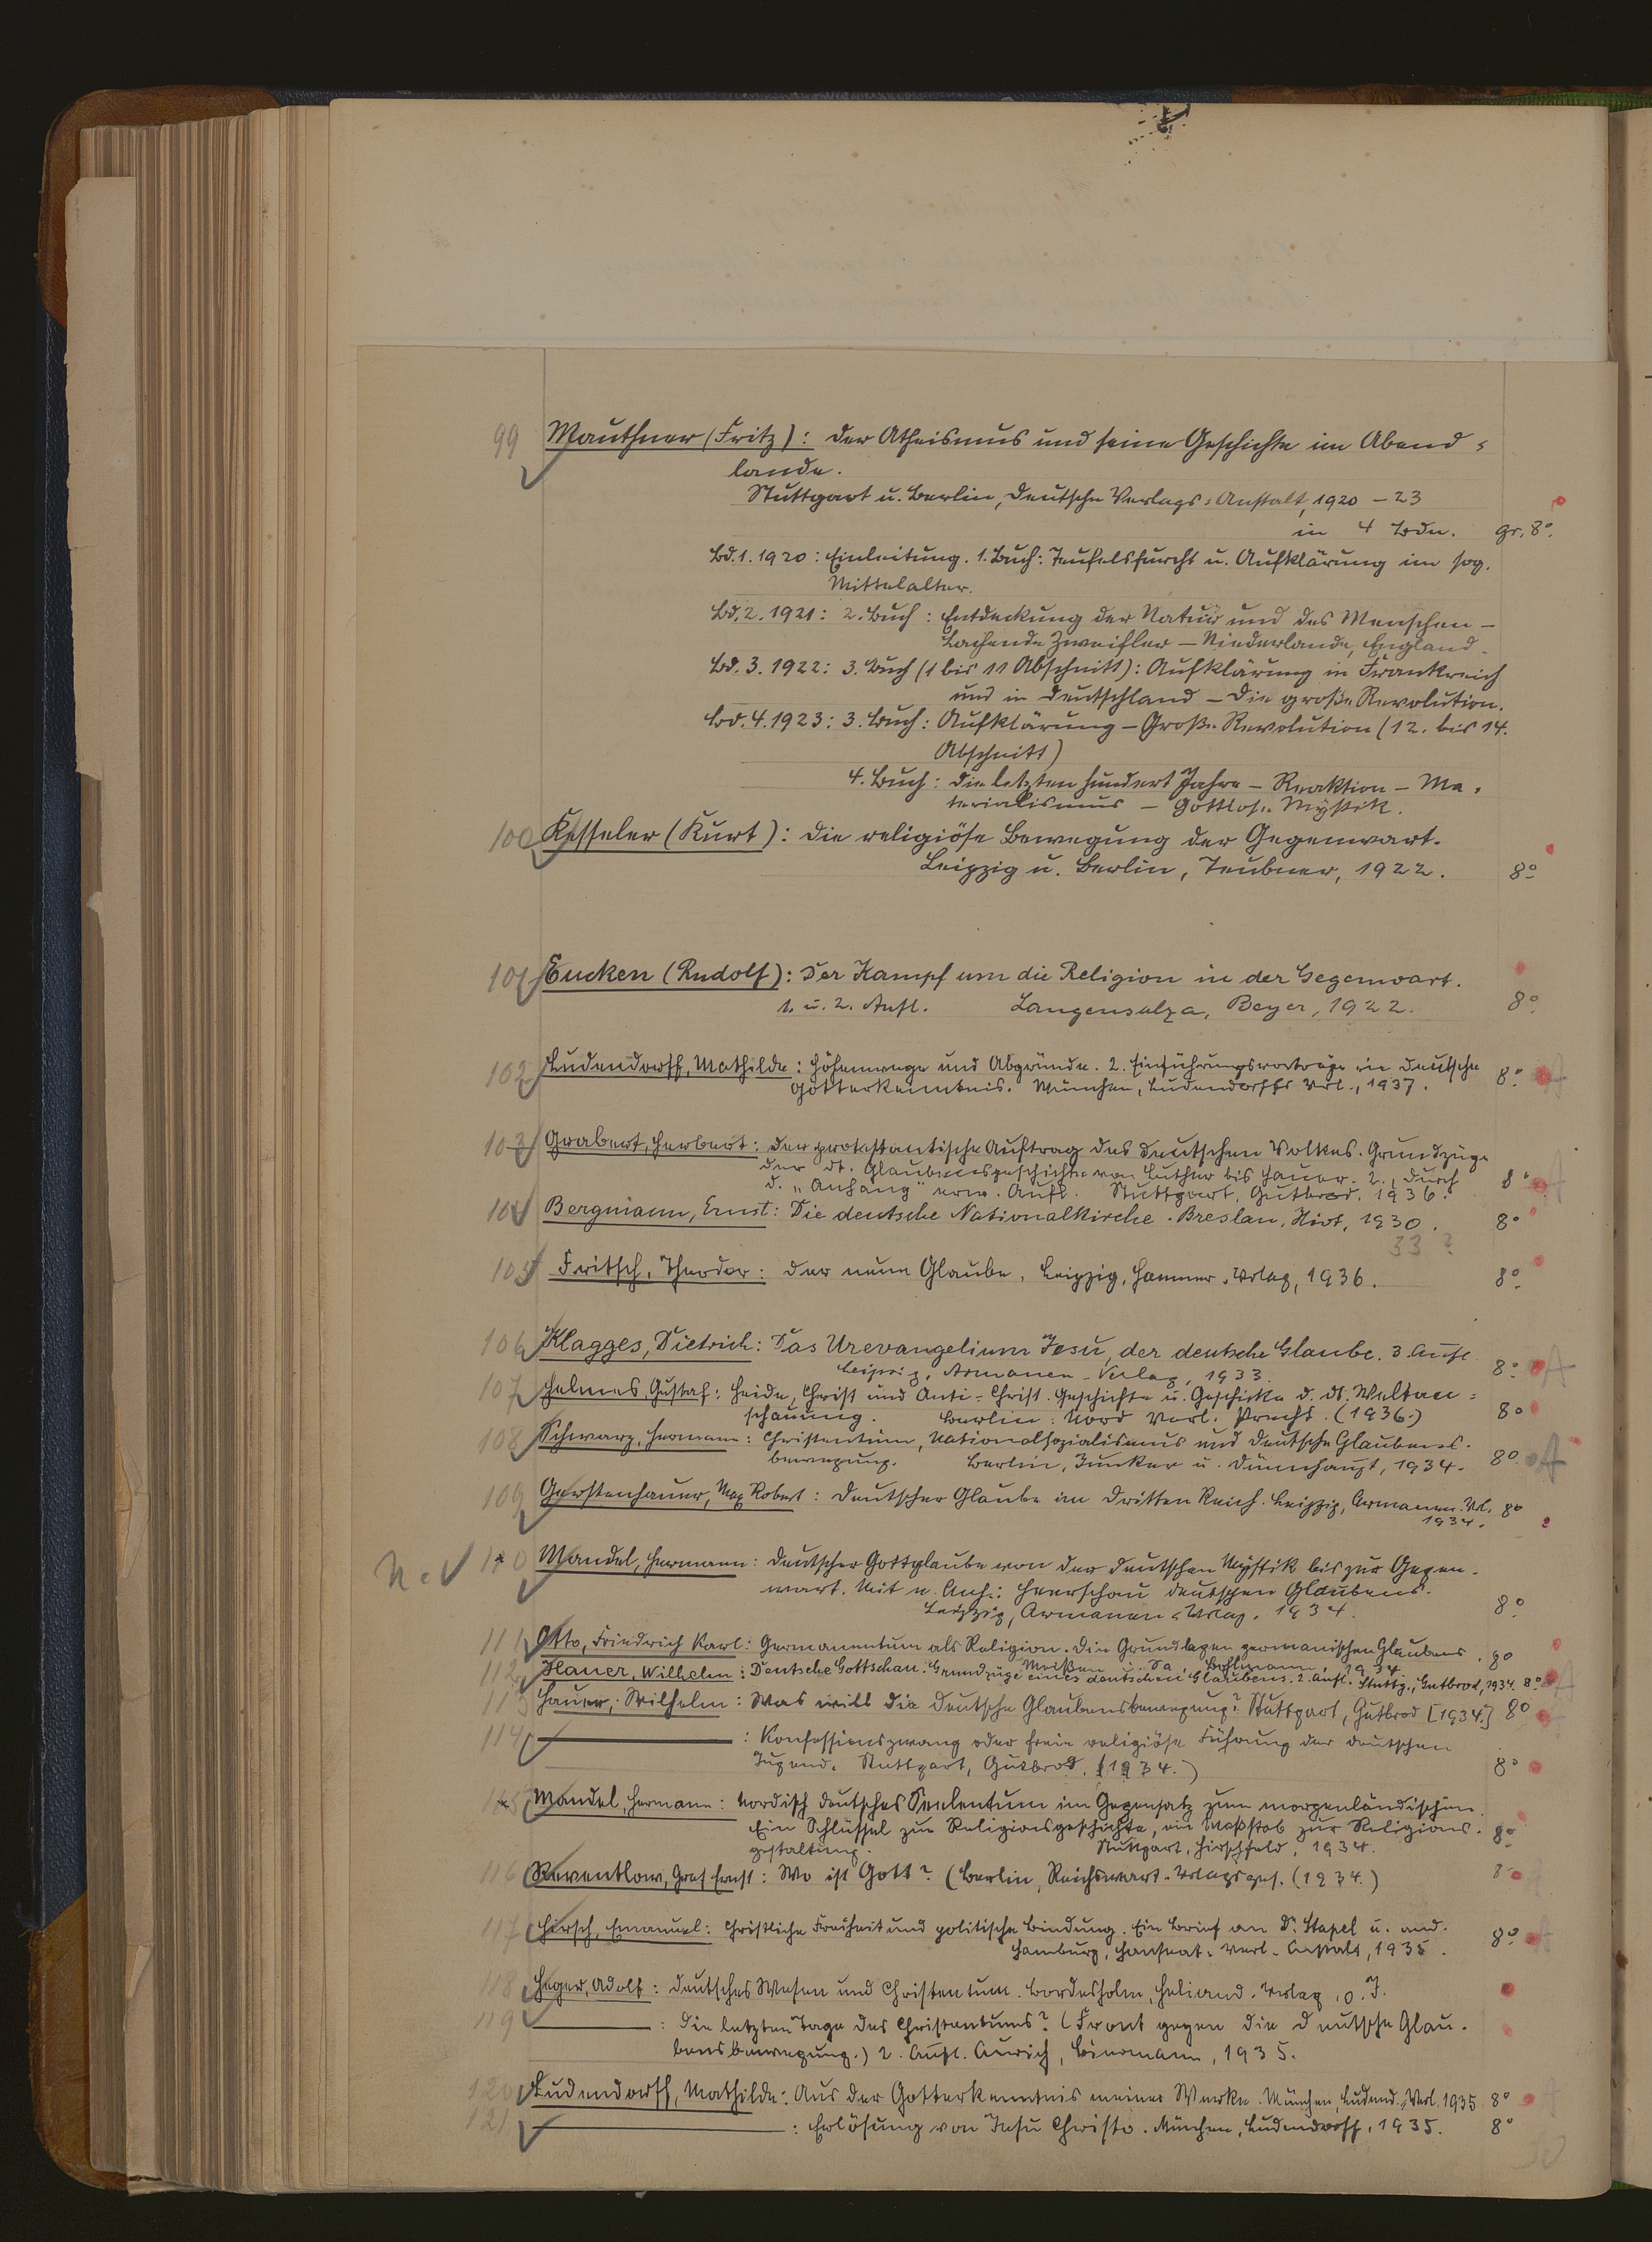 99 Mauthner (Fritz): Der Atheismus und seine Geschichte im Abend-
lande.
Stuttgart u. Berlin, Deutsche Verlags-Anstalt, 1920 - 23
in 4 Bdn. gr. 8°.
Bd. 1. 1920: Einleitung. 1. Buch: Teufelsfurcht u. Aufklärung im sog.
Mittelalter.
Bd. 2. 1921: 2. Buch: Entdeckung der Natur und des Menschen -
Lachende Zweifler - Niederlande, England.
Bd. 3. 1922: 3. Buch (1 bis 11 Abschnitt): Aufklärung in Frankreich
und in Deutschland - Die große Revolution.
Bd. 4. 1923: 3. Buch: Aufklärung - Große Revolution (12. bis 14.
Abschnitt)
4. Buch: Die letzten hundert Jahre - Reaktion - Ma-
terialismus - Gottlose Mystik.
100 Kesseler (Kurt): Die religiöse Bewegung der Gegenwart.
Leipzig u. Berlin, Teubner, 1922. 8°
101 Eucken (Rudolf): Der Kampf um die Religion in der Gegenwart.
1. u. 2. Aufl. Langensalza, Beyer, 1922. 8°
102 Ludendorff, Mathilde: Höhenwege und Abgründe. 2. Einführungsvorträge in Deutsche
Gotterkenntnis. München, Ludendorffs Verl., 1937. 8° A
103 Grabert, Herbert: Der protestantische Auftrag des deutschen Volkes. Grundzüge
der dt. Glaubensgeschichte von Luther bis Hauer. 2., durch
d. "Anhang" erw. Aufl. Stuttgart, Gutbrod, 1936. 8° A
104 Bergmann, Ernst: Die deutsche Nationalkirche. Breslau, Hirt, 1930. 8°
33 ?
105 Fritsch, Theodor: Der neue Glaube. Leipzig, Hammer-Verlag, 1936. 8°
106 Klagges, Dietrich: Das Urevangelium Jesu, der deutsche Glaube. 3. Aufl.
Leipzig, Armanen-Verlag, 1933. 8° A
107 Helmes, Gustaf: Heide, Christ und Anti-Christ. Geschichte u. Geschicke d. dt. Weltan-
schauung. Berlin: Nord Verl. Precht. (1936.) 8°
108 Schwarz, Hermann: Christentum, Nationalsozialismus und Deutsche Glaubens-
bewegung. Berlin, Junker u. Dünnhaupt, 1934. 8° A
109 Gerstenhauer, Max Robert: Deutscher Glaube im Dritten Reich. Leipzig, Armanen-Vrl. 8°
1934.
110 Mandel, Hermann: Deutscher Gottglaube von der deutschen Mystik bis zur Gegen-
wart. Mit e. Anh.: Heerschau deutschen Glaubens.
Leipzig, Armanen-Verlag, 1934. 8°
111 Otto, Friedrich Karl: Germanentum als Religion. Die Grundlagen germanischen Glaubens. 8°
Meißen i. Sa., Bohlmann, 1934
112 Hauer, Wilhelm: Deutsche Gottschau. Grundzüge eines deutschen Glaubens. 2. Aufl. Stuttg., Gutbrod, 1934. 8° A
113 Hauer, Wilhelm: Was will die Deutsche Glaubensbewegung? Stuttgart, Gutbrod [1934.] 8°
114 ———: Konfessionszwang oder freie religiöse Führung der deutschen
Jugend. Stuttgart, Gutbrod, (1934.) 8°
115 Mandel, Hermann: Nordisch deutsches Seelentum im Gegensatz zum morgenländischen.
Ein Schlüssel zur Religionsgeschichte, ein Maßstab zur Religions-
gestaltung. Stuttgart, Hirschfeld, 1934. 8°
116 Reventlow, Graf Ernst: Wo ist Gott? (Berlin, Reichswart-Verlagsges. (1934.) 8°
117 Hirsch, Emanuel: Christliche Freiheit und politische Bindung. Ein Brief an Dr. Stapel u. and.
Hamburg, Hanseat. Verl.-Anstalt, 1935. 8° A
118 Heger, Adolf: Deutsches Wesen und Christentum. Bordesholm, Heliand-Verlag, o. J.
119 ———: Die letzten Tage des Christentums? (Front gegen die Deutsche Glau-
bensbewegung.) 2. Aufl. Aurich, 1935.
120 Ludendorff, Mathilde: Aus der Gotterkenntnis meiner Werke. München, Ludend.-Verl. 1935 8° A
121 ———: Erlösung von Jesu Christo. München, Ludendorff, 1935. 8°